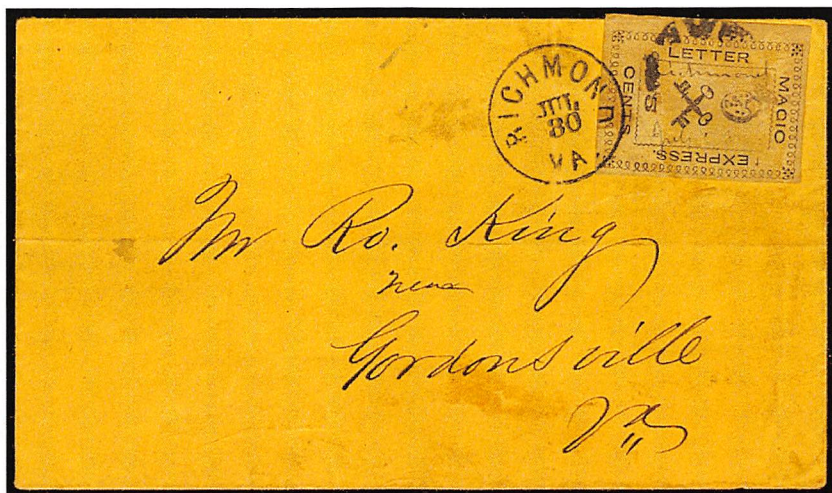 RICHMOND
JUL.
30
VA
LETTER
MAGIC
CENTS
5
EXPRESS.
Mr Ro. King
near
Gordonsville
Va